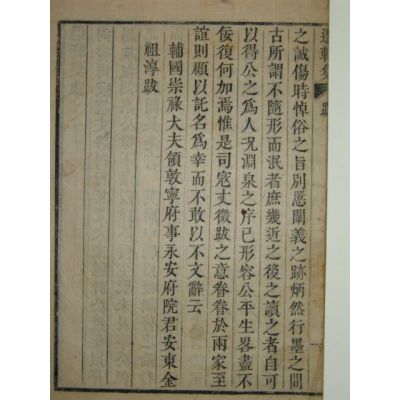 軒集 跋
之誠傷時悼俗之旨別慝闡義之跡炳然行墨之間
古所謂不隨形而泯者庶幾近之後之讀之者自可
以得公之爲人況淵泉之序已形容公平生畧盡不
佞復何加焉惟是司寇丈徵跋之意眷眷於兩家至
誼則願以託名爲幸而不敢以不文辭云
輔國崇祿大夫領敦寧府事永安府院君安東金
祖淳跋